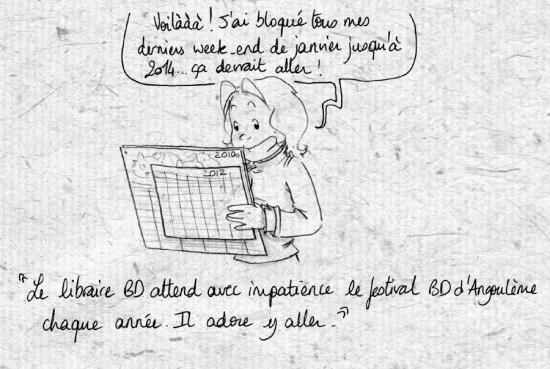 Voilààà! J'ai bloqué tous mes
derniers week-end de janvier jusqu'à
2014... ça devrait aller!
2010
2012
"Le libraire BD attend avec impatience le festival BD d'Angoulème
chaque année. Il adore y aller."